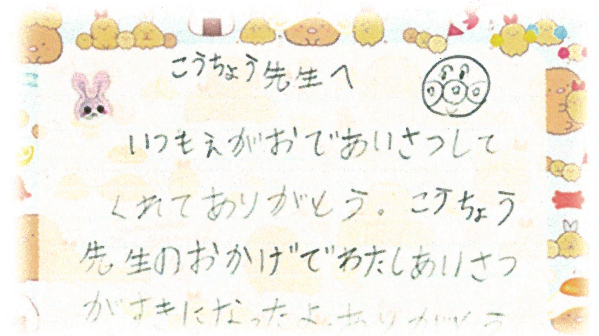 こうちょう先生へ
いつもえがおであいさつして
くれてありがとう。こうちょう
先生のおかげでわたしあいさつ
がすきになったよ。ありがとう